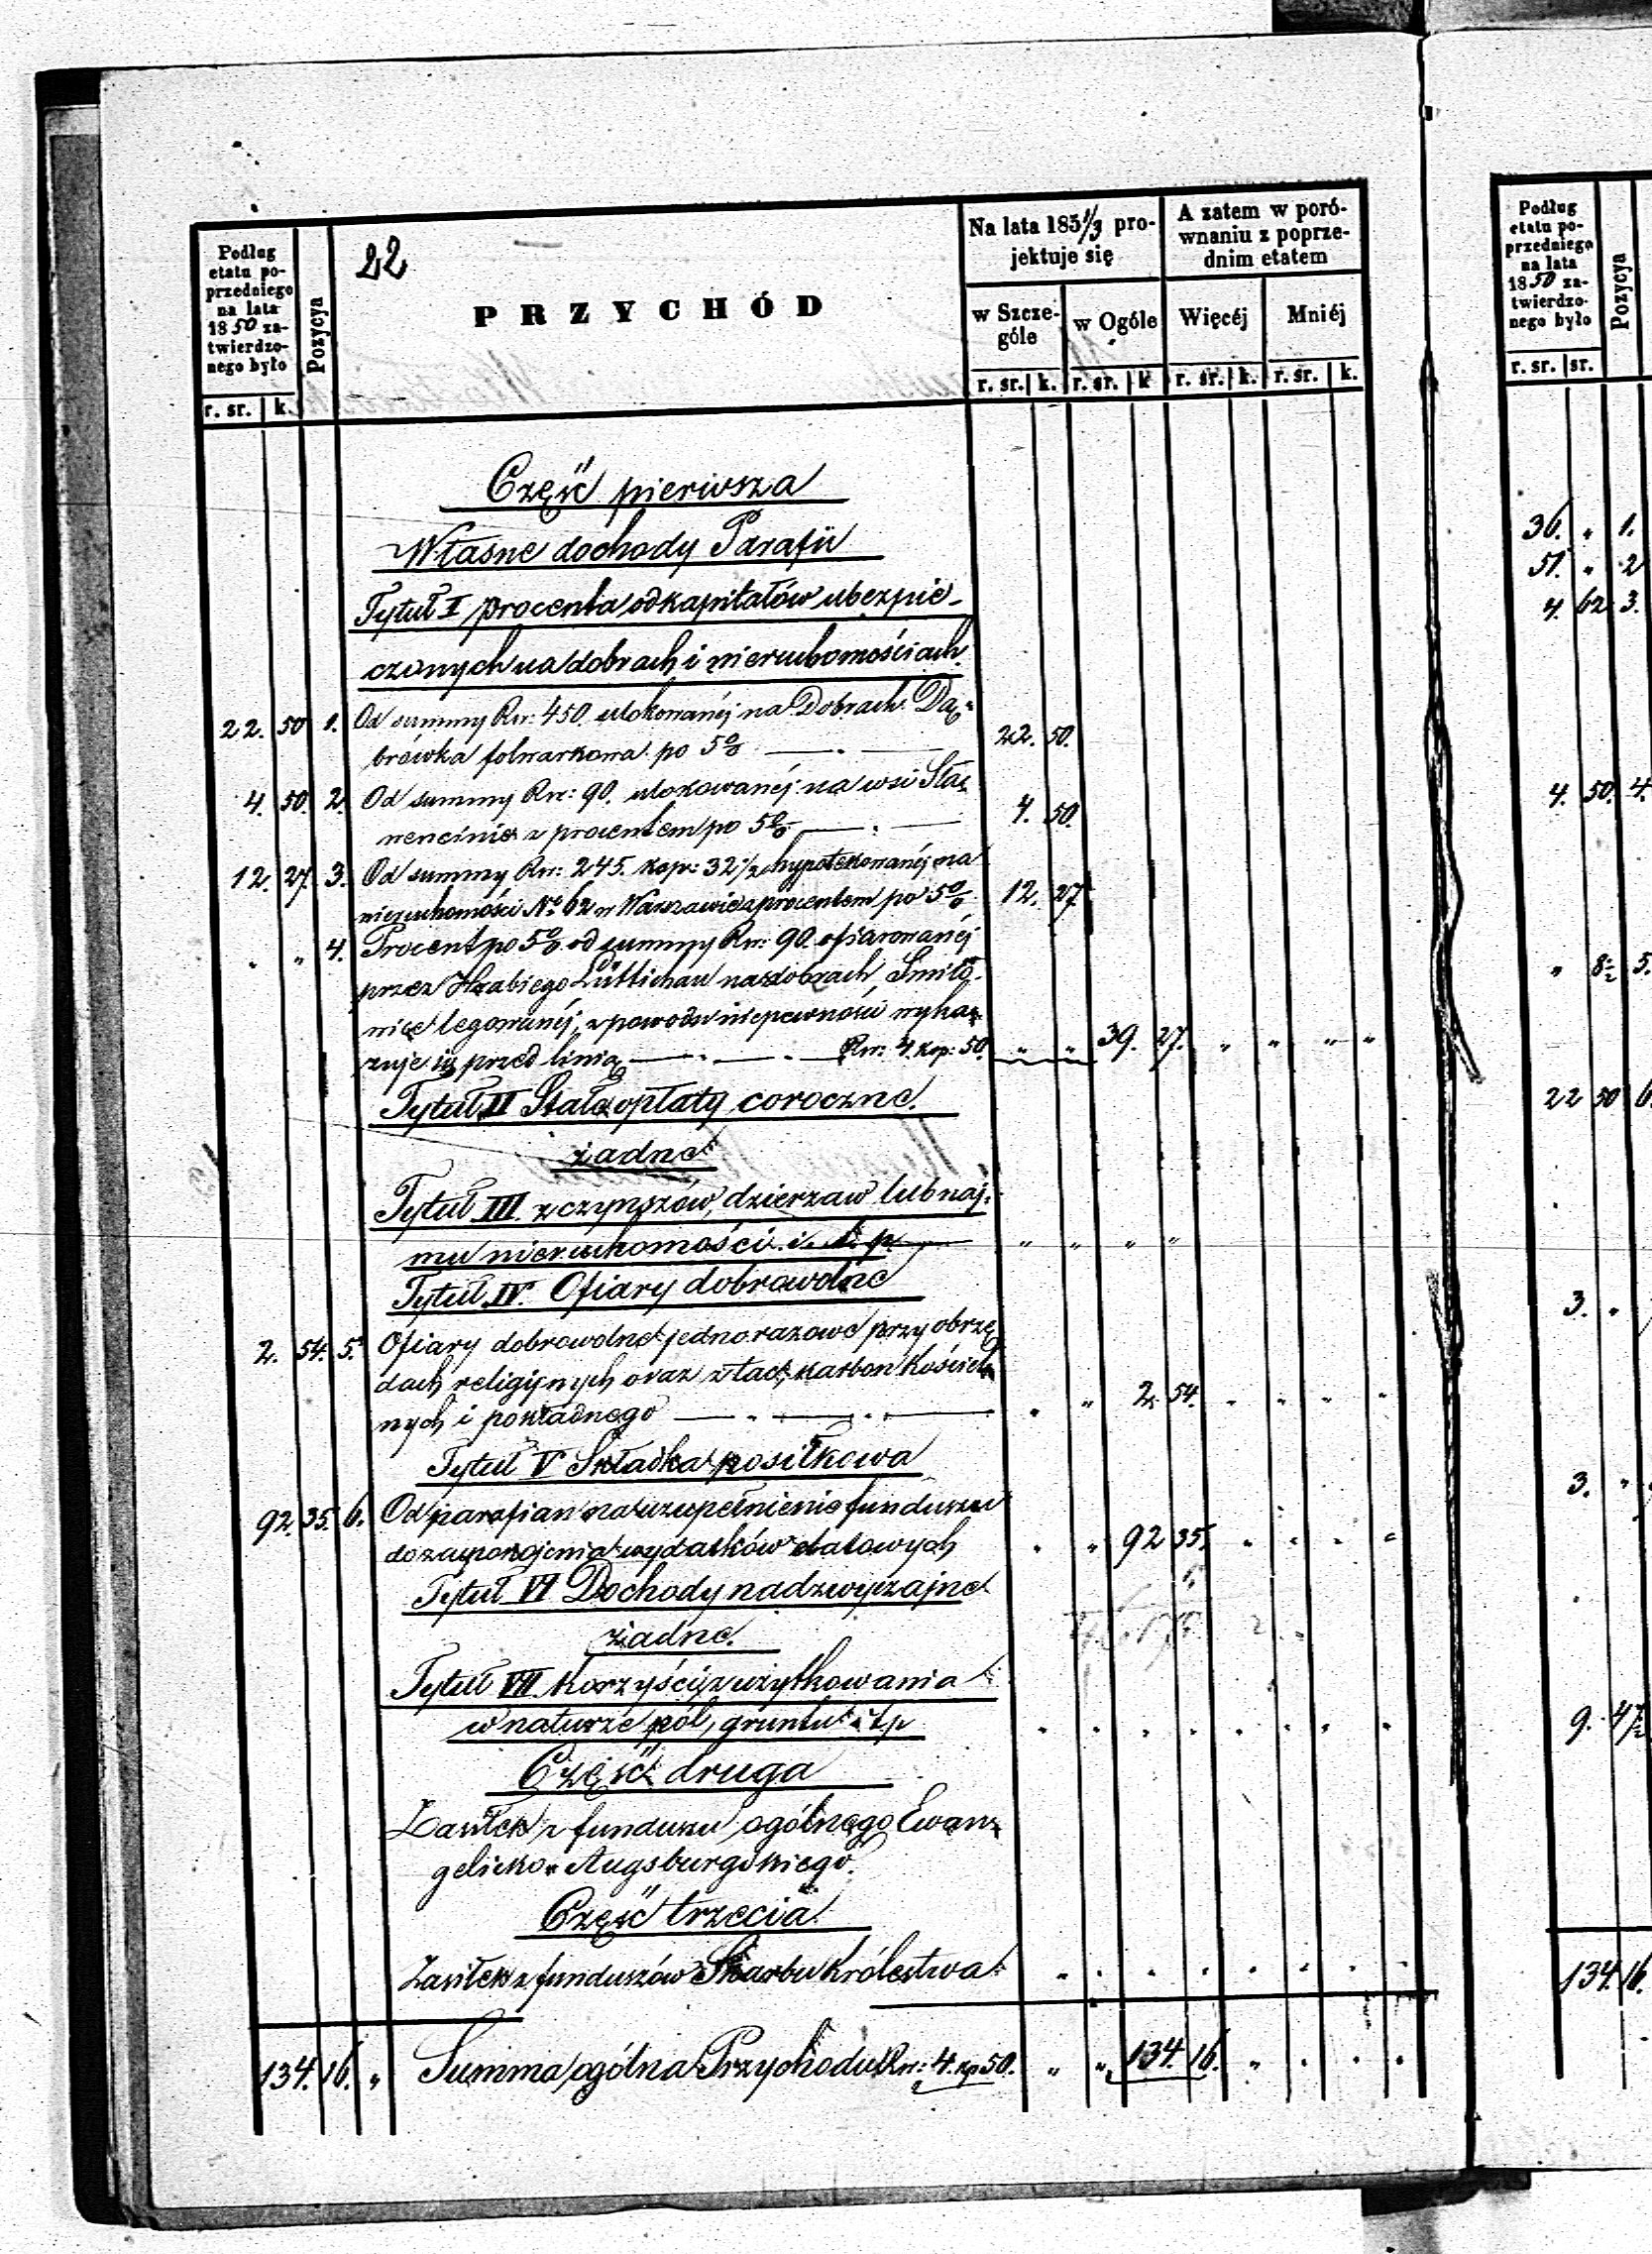 22
PRZYCHÓD
Podług etatu poprzedniego na lata 1850 zatwierdzonego było
Pozycya
Na lata 1851/3 projektuje się
A zatem w porównaniu z poprzednim etatem
w Szczególe
w Ogóle
Więcéj
Mniéj
r. sr. k. r. sr. k r. sr. k. r. sr. k.
r. sr. k.
Część pierwsza
Własne dochody Parafii
Tytuł I procenta od kapitałów ubezpie-
czonych na dobrach i nieruchomościach
22. 50 1. Od summy Rsr: 450. ulokowanéj na Dobrach Dą-
brówka folwarkowa po 5% 22. 50.
4. 50. 2. Od summy Rsr: 90. ulokowanéj na wsi
z procentem po 5% 4. 50.
12. 27. 3. Od summy Rsr: 245. kop: 32 1/2 hypotekowanéj na
nieruchomości No 62 w Warszawie z procentem po 5% 12. 27
" " 4. Procent po 5% od summy Rsr: 90. ofiarowanéj
przez Hrabiego Lüttichau na dobrach Smiło-
nice legowanéj, z powodu niepewności wyka-
zuje się przed linią Rsr: 4. kop: 50. " " 39. 27. " " " "
Tytuł II Stałe opłaty coroczne.
żadne
Tytuł III z czynszów, dzierzaw lub naj-
mu nieruchomości i t. p. " " " "
Tytuł IV. Ofiary dobrowolne
2. 54. 5. Ofiary dobrowolne jednorazowe przy obrzę
dach religijnych oraz z tac, karbon Kościel
nych i pokładnego " " 2. 54. " " " "
Tytuł V Składka posiłkowa
92. 35. 6. Od parafian na uzupełnienie funduszu
do zaspokojenia wydatków etatowych " " 92 35. " " " "
Tytuł VI Dochody nadzwyczajne
żadne.
Tytuł VII Korzyści z użytkowania
w naturze pól, gruntu i t p " " " " " " " "
Część druga
Zasiłek z funduszu ogólnego Ewan-
gelicko-Augsburgskiego.
Część trzecia
Zasiłek z funduszów Skarbu Królestwa " " " " " " " "
134. 16. " Summa ogólna Przychodu Rsr: 4. kp 50. " " 134. 16. " " " "
Podług etatu poprzedniego na lata 1850 zatwierdzonego było
Pozycya
r. sr. sr.
36. " 1.
51. " 2
4. 62 3.
4. 50. 4.
" 8 1/2 5.
22 50 6
3. "
3. "
9. 47 1/2
134. 16.